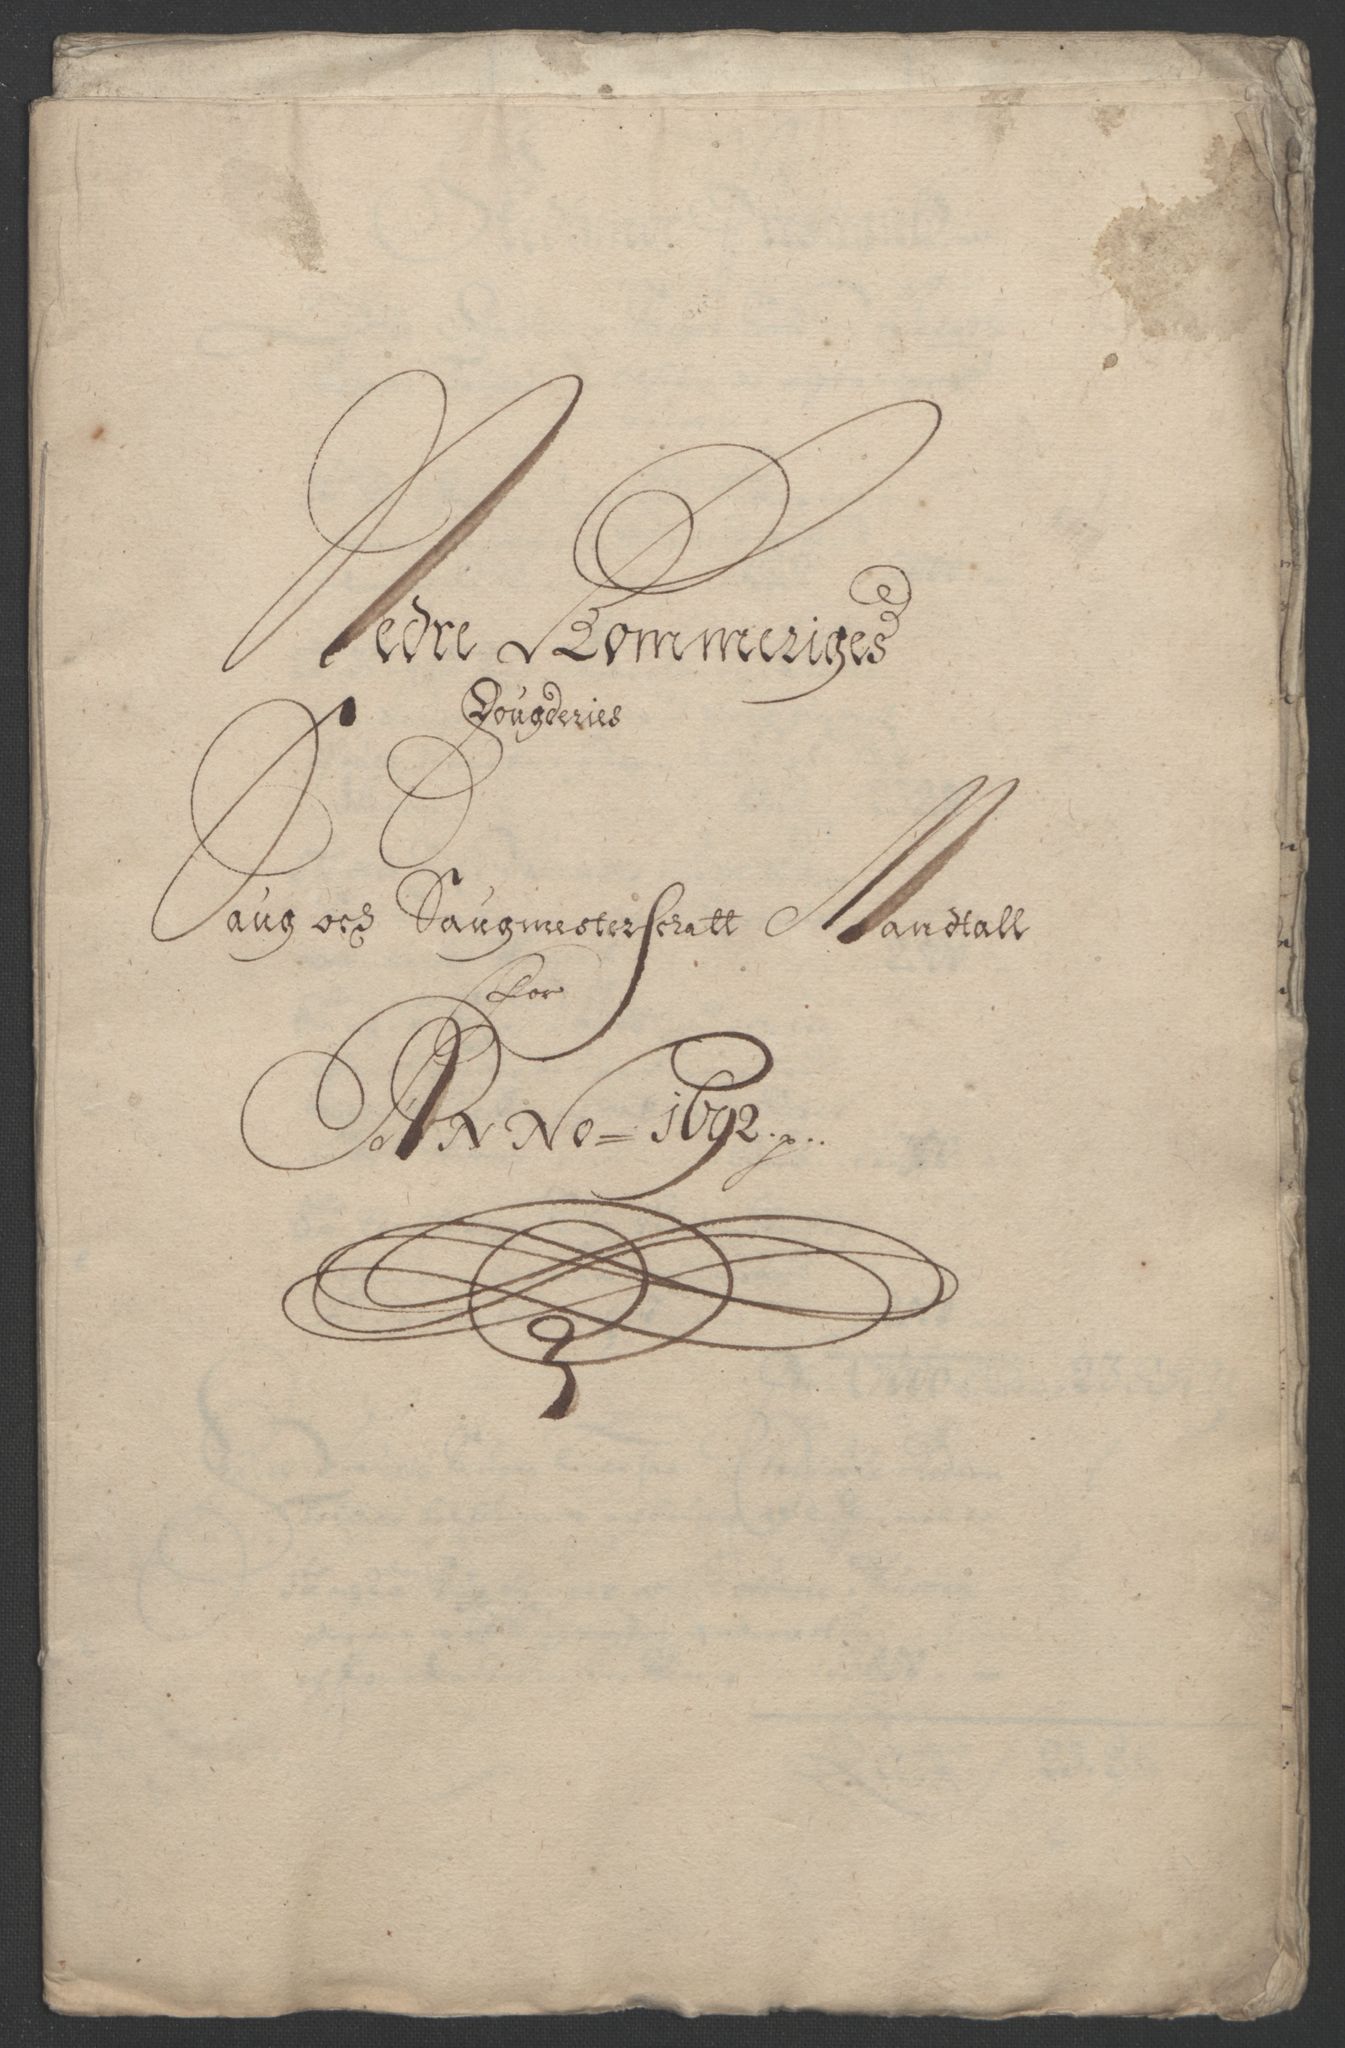 Nedre Rommeriges
Fougderies
Saug och Saugmester Schatt Mandtall
For
ANNo = 1692.